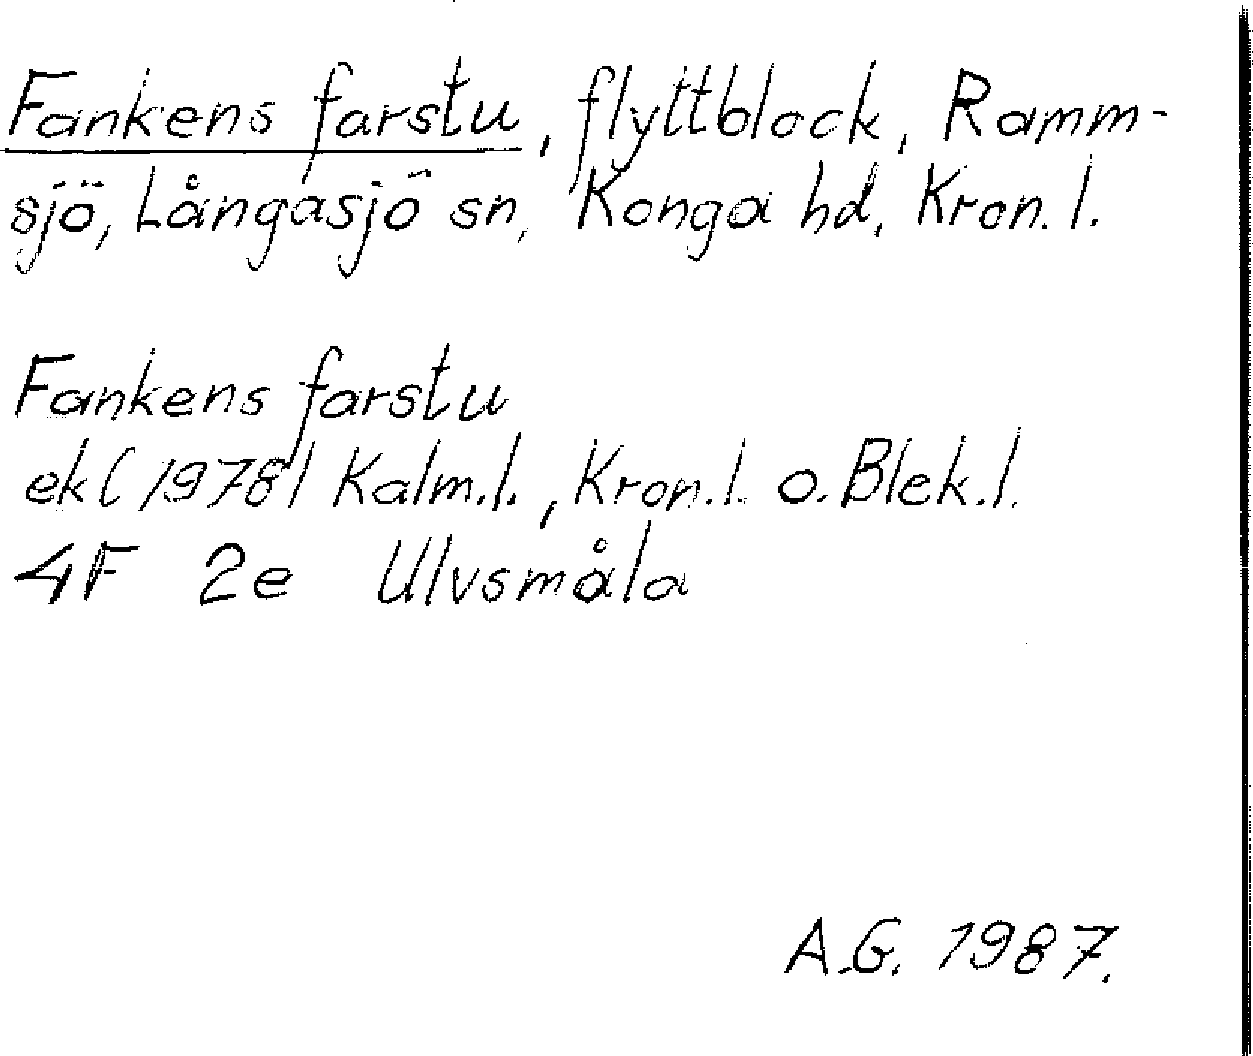 Fankens farstu, flyttblock, Ramm-
sjö, Långasjö sn, Konga hd, Kron. l.
Fankens farstu
ek (1978) Kalm.l., Kron.l. o. Blek.l.
4F 2e Ulvsmåla
A.G. 1987.